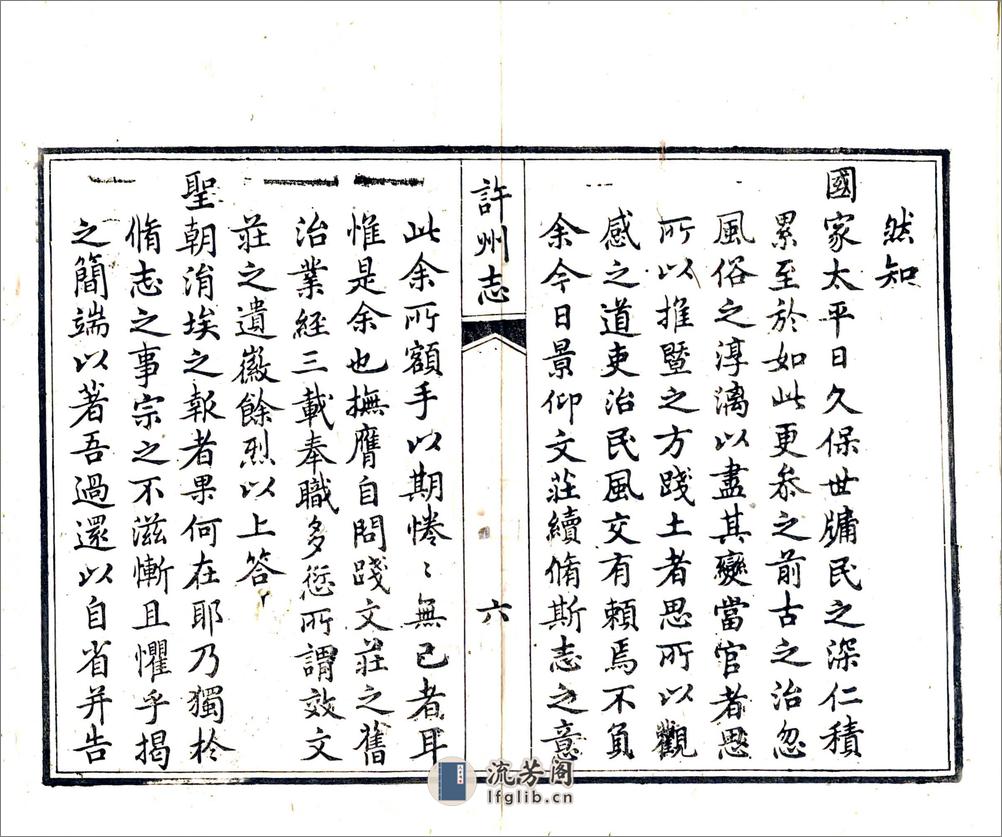 然知
國家太平日久保世牖民之深仁積
累至於如此更叅之前古之治忽
風俗之淳漓以盡其變當官者思
所以推暨之方踐土者思所以觀
感之道吏治民風交有賴焉不負
余今日景仰文莊續脩斯志之意
許州志
六
此余所額手以期惓〻無已者耳
惟是余也撫膺自問踐文莊之舊
治業経三載奉職多愆所謂效文
莊之遺徽餘烈以上答
聖朝涓埃之報者果何在耶乃獨於
脩志之事宗之不滋慚且懼乎揭
之簡端以著吾過還以自省并告
流芳阁
lfglib.cn